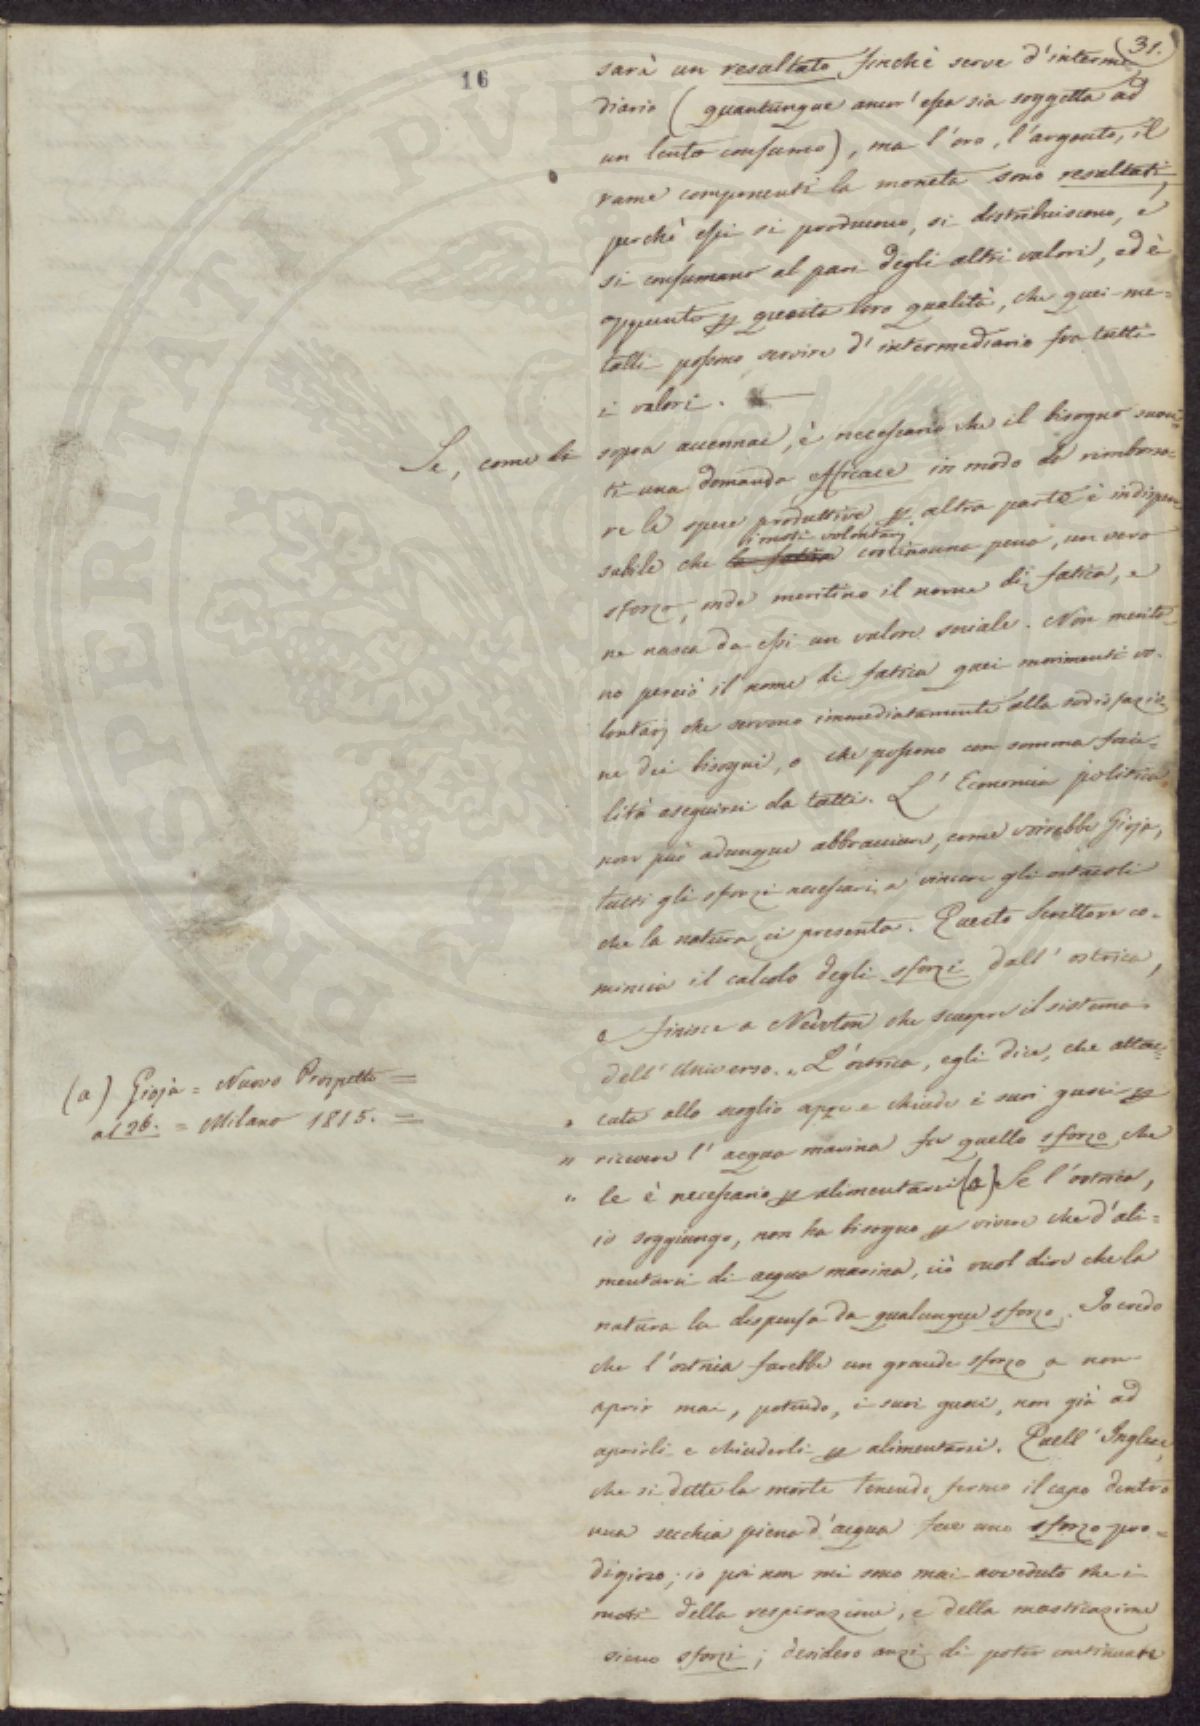 31.
16
sarà un resultato finchè serve d'interme
diario (quantunque ancor' essa sia soggetta ad
un lento consumo), ma l'oro, l'argento, il
rame componenti la moneta sono resultati,
perchè essi si producono, si distribuiscono, e
si consumano al pari degli altri valori, ed è
appunto p questa loro qualità, che quei me=
talli possono servire d'intermediario fra tutti
i valori. —
Se, come di sopra accennai, è necessario che il bisogno susci=
ti una domanda efficace in modo da rimborsa=
re le spese produttive p altra parte è indispen
sabile che la fatica i moti volontarj costino una pena, un vero
sforzo, onde meritino il nome di fatica, e
ne nasca da essi un valore sociale. Non merita=
no perciò il nome di fatica quei movimenti vo-
lontarj che servono immediatamente alla sodisfazio
ne dei bisogni, o che possono con somma faci=
lità eseguirsi da tutti. L'Economia politica
non può adunque abbracciare, come vorrebbe Gioja,
tutti gli sforzi necessarj a vincere gli ostacoli
che la natura ci presenta. Questo Scrittore co-
mincia il calcolo degli sforzi dall'ostrica,
e finisce a Newton che scuopre il sistema
dell'Universo. „ L'ostrica, egli dice, che attac=
„ cata allo scoglio apre e chiude i suoi gusci p
„ ricevere l'acqua marina fa quello sforzo che
„ le è necessario p alimentarsi (a) Se l'ostrica,
io soggiungo, non ha bisogno p vivere che d'ali=
mentarsi di acqua marina, ciò vuol dire che la
natura la dispensa da qualunque sforzo. Io credo
che l'ostrica farebbe un grande sforzo a non
aprir mai, potendo, i suoi gusci, non già ad
aprirli e chiuderli p alimentarsi. Quell'Inglese,
che si dette la morte tenendo fermo il capo dentro
una secchia piena d'acqua fece uno sforzo pro=
digioso; io poi non mi sono mai avveduto che i
moti della respirazione, e della masticazione
sieno sforzi; desidero anzi di poter continuare
(a) Gioja = Nuovo Prospetto =
al 26. = Milano 1815. =